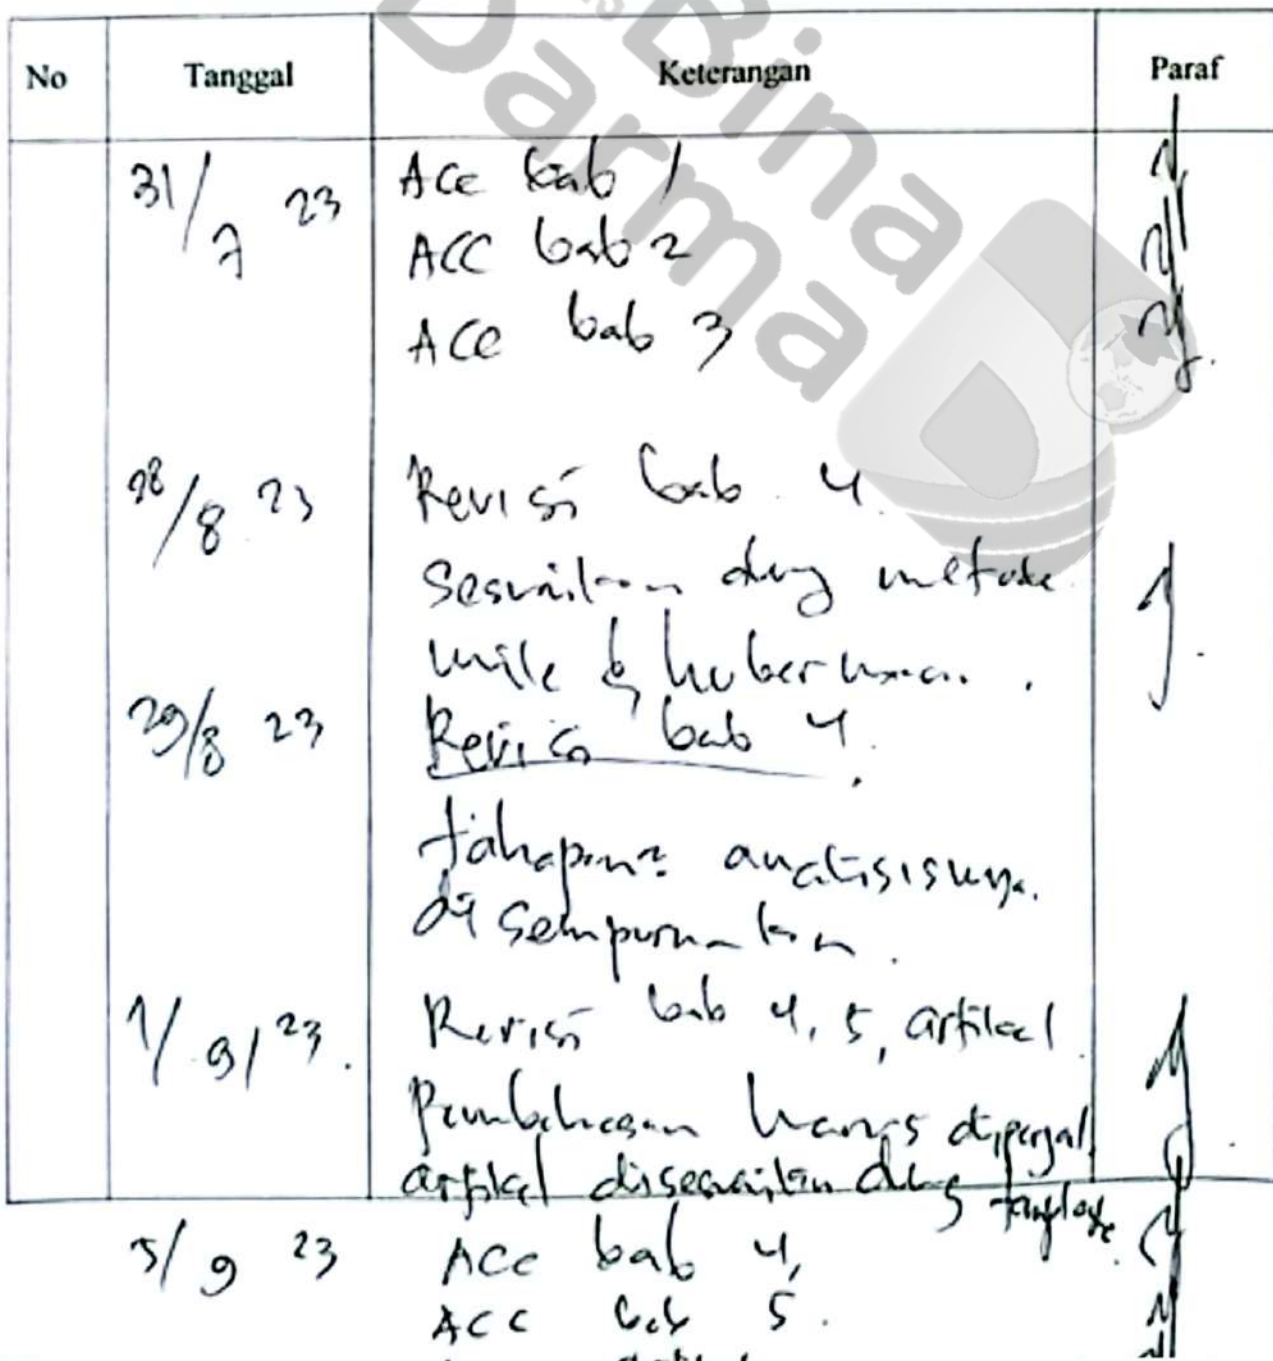 Bina
Darma
No Tanggal Keterangan Paraf
31/7 23 Acc bab 1
ACC bab 2
ACC bab 3
28/8 23 Revisi bab 4
Sesuaikan dng metode
mile & huberman.
29/8 23 Revisi bab 4.
tahapan2 analisisnya
di sempurnakan.
1/9/23. Revisi bab 4, 5, artikel
Pembahasan harus
artikel disesuaikan dng template.
5/9 23 Acc bab 4,
ACC bab 5.